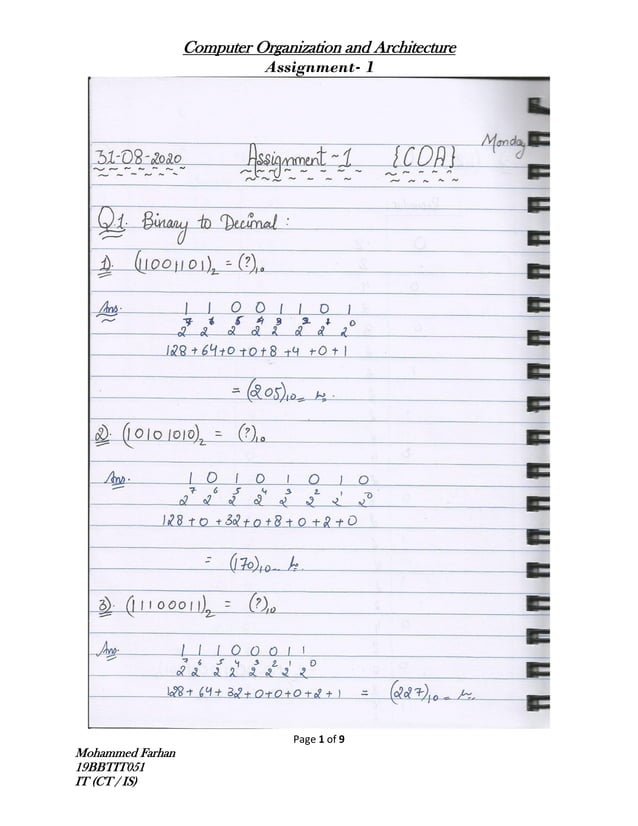 Computer Organization and Architecture
Assignment- 1
Monday
31-08-2020 Assignment-1 {COA}
Q1. Binary to Decimal :
1). (11001101)₂ = (?)₁₀
Ans. 1 1 0 0 1 1 0 1
2⁷ 2⁶ 2⁵ 2⁴ 2³ 2² 2¹ 2⁰
128 + 64 + 0 + 0 + 8 + 4 + 0 + 1
= (205)₁₀
2). (10101010)₂ = (?)₁₀
Ans. 1 0 1 0 1 0 1 0
2⁷ 2⁶ 2⁵ 2⁴ 2³ 2² 2¹ 2⁰
128 + 0 + 32 + 0 + 8 + 0 + 2 + 0
= (170)₁₀
3). (11100011)₂ = (?)₁₀
Ans. 1 1 1 0 0 0 1 1
2⁷ 2⁶ 2⁵ 2⁴ 2³ 2² 2¹ 2⁰
128 + 64 + 32 + 0 + 0 + 0 + 2 + 1 = (227)₁₀
Page 1 of 9
Mohammed Farhan
19BBTIT051
IT (CT / IS)